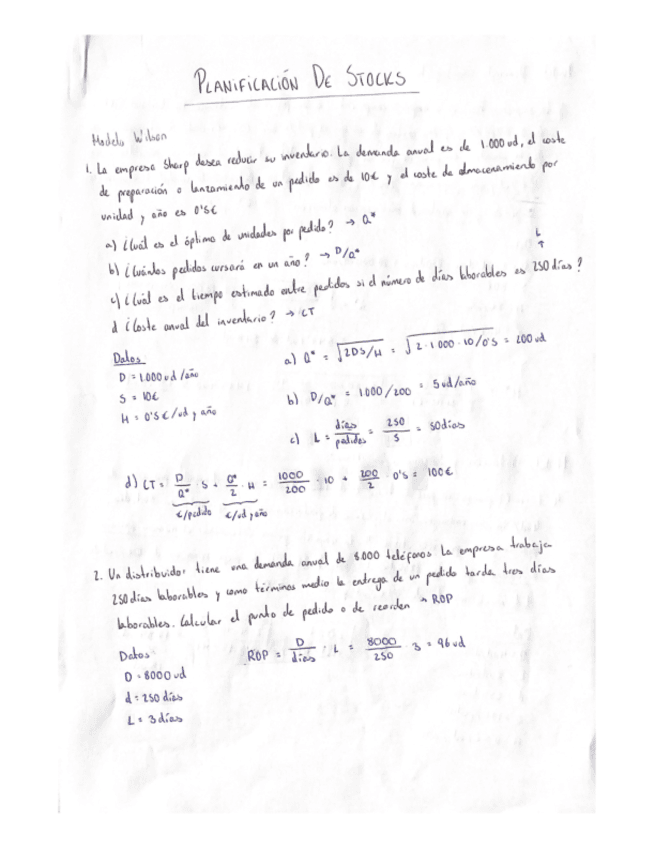 PLANIFICACIÓN DE STOCKS
Modelo Wilson
1. La empresa Sharp desea reducir su inventario. La demanda anual es de 1.000 ud, el coste
de preparación o lanzamiento de un pedido es de 10€ y el coste de almacenamiento por
unidad y año es 0'5€
a) ¿Cuál es el óptimo de unidades por pedido? → Q*
b) ¿Cuántos pedidos cursará en un año? → D/Q*
L
↑
c) ¿Cuál es el tiempo estimado entre pedidos si el número de días laborables es 250 días?
d ¿Coste anual del inventario? → CT
Datos
D = 1.000 ud/año
S = 10€
H = 0'5 €/ud y año
a) Q* = √2DS/H = √2·1.000·10/0'5 = 200 ud
b) D/Q* = 1.000/200 = 5 ud/año
c) L = días/pedidos = 250/5 = 50 días
d) CT = D/Q* · S + Q*/2 · H = 1000/200 · 10 + 200/2 · 0'5 = 100€
€/pedido €/ud y año
2. Un distribuidor tiene una demanda anual de 8.000 teléfonos. La empresa trabaja
250 días laborables y como términos medio la entrega de un pedido tarda tres días
laborables. Calcular el punto de pedido o de reorden → ROP
Datos
D = 8000 ud
d = 250 días
L = 3 días
ROP = D/días · L = 8000/250 · 3 = 96 ud